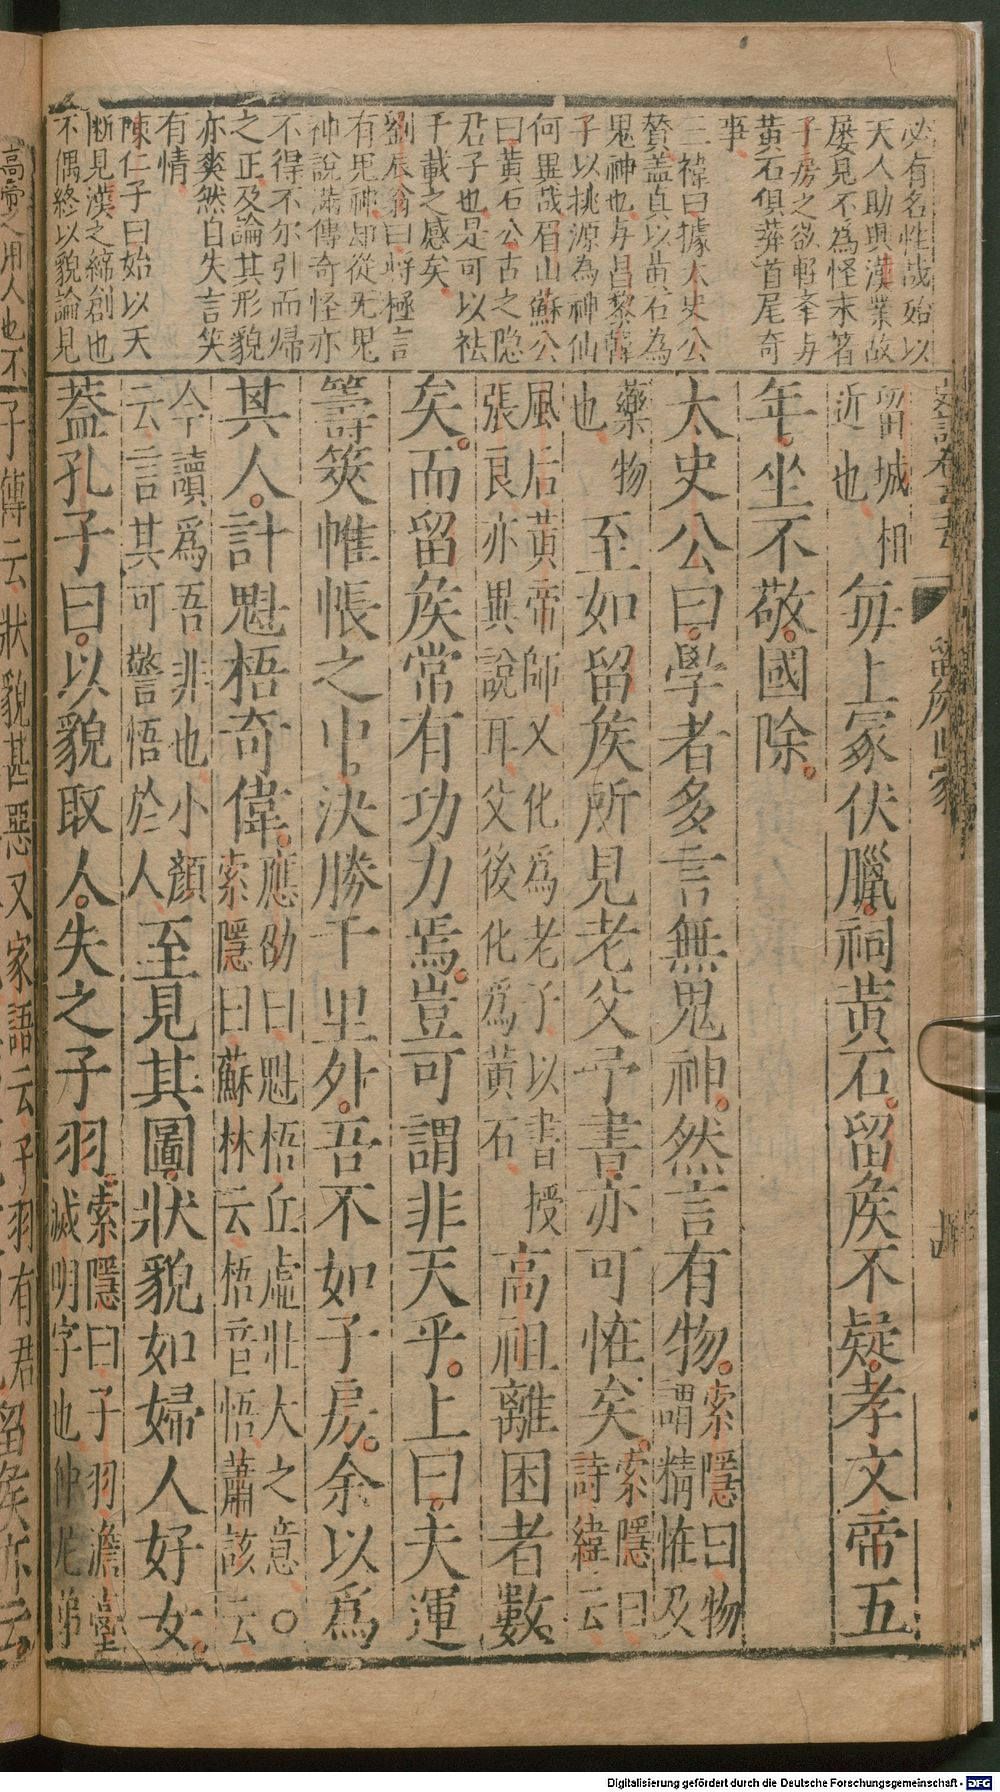 必有名性哉始以
天人助興漢業故
屢見不為怪末著
子房之欲輕牽与
黃石俱葬首尾奇
事
三褘曰據太史公
贊盖真以黃石為
鬼神也与昌黎韓
子以桃源為神仙
何異哉眉山蘇公
曰黃石公古之隐
君子也是可以袪
千載之感矣
劉辰翁曰將極言
有鬼神却從无鬼
神說滿傳奇怪亦
不得不尔引而歸
之正及論其形貌
亦爽然自失言笑
有情
陳仁子曰始以天
断見漢之締創也
不偶終以貌論見
留侯世家
留城相近也每上冢伏臘祠黃石留侯不疑孝文帝五
年坐不敬國除
太史公曰學者多言無鬼神然言有物索隱曰物謂精恠及
藥物也至如留侯所見老父予書亦可恠矣索隱曰詩緯云
風后黃帝師又化為老子以書授張良亦異說耳父後化為黃石高祖離困者數
矣而留侯常有功力焉豈可謂非天乎上曰夫運
籌筴帷帳之中決勝千里外吾不如子房余以爲
其人計魁梧奇偉應劭曰魁梧丘虛壯大之意○索隱曰蘇林云梧音悟蕭該云
今讀爲吾非也小顏云言其可警悟於人至見其圖狀貌如婦人好女
葢孔子曰以貌取人失之子羽索隱曰子羽澹臺滅明字也仲尼弟
高帝之用人也不
子傳云狀貌甚惡又家語云子羽有君
留侯亦云
Digitalisierung gefördert durch die Deutsche Forschungsgemeinschaft - DFG